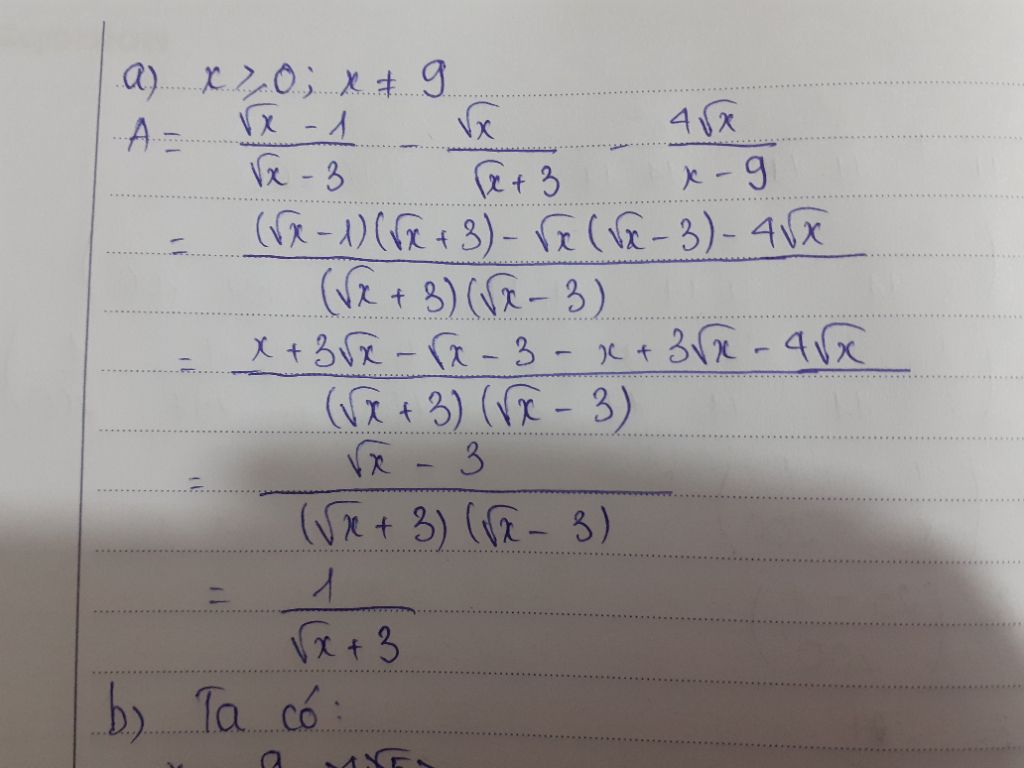 a) x ≥ 0; x ≠ 9
A = (√x - 1)/(√x - 3) - √x/(√x + 3) - 4√x/(x - 9)
= ((√x - 1)(√x + 3) - √x(√x - 3) - 4√x)/((√x + 3)(√x - 3))
= (x + 3√x - √x - 3 - x + 3√x - 4√x)/((√x + 3)(√x - 3))
= (√x - 3)/((√x + 3)(√x - 3))
= 1/(√x + 3)
b) Ta có: